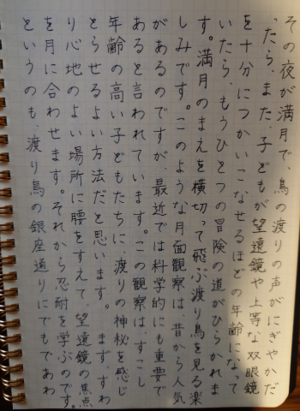 その夜が満月で、鳥の渡りの声がにぎやかだ
ったら、また、子どもが望遠鏡や上等な双眼鏡
を十分につかいこなせるほどの年齢になって
いたら、もうひとつの冒険の道がひらかれま
す。満月のまえを横切って飛ぶ渡り鳥を見る楽
しみです。このような月面観察は昔から人気
があるのですが、最近では科学的にも重要で
あると言われています。この観察は、すこし
年齢の高い子どもたちに、渡りの神秘を感じ
とらせるよい方法だと思います。まず、すわ
り心地のよい場所に腰をすえて、望遠鏡の焦点
を月に合わせます。それから忍耐を学ぶのです。
というのも、渡り鳥の銀座通りにでもであわ